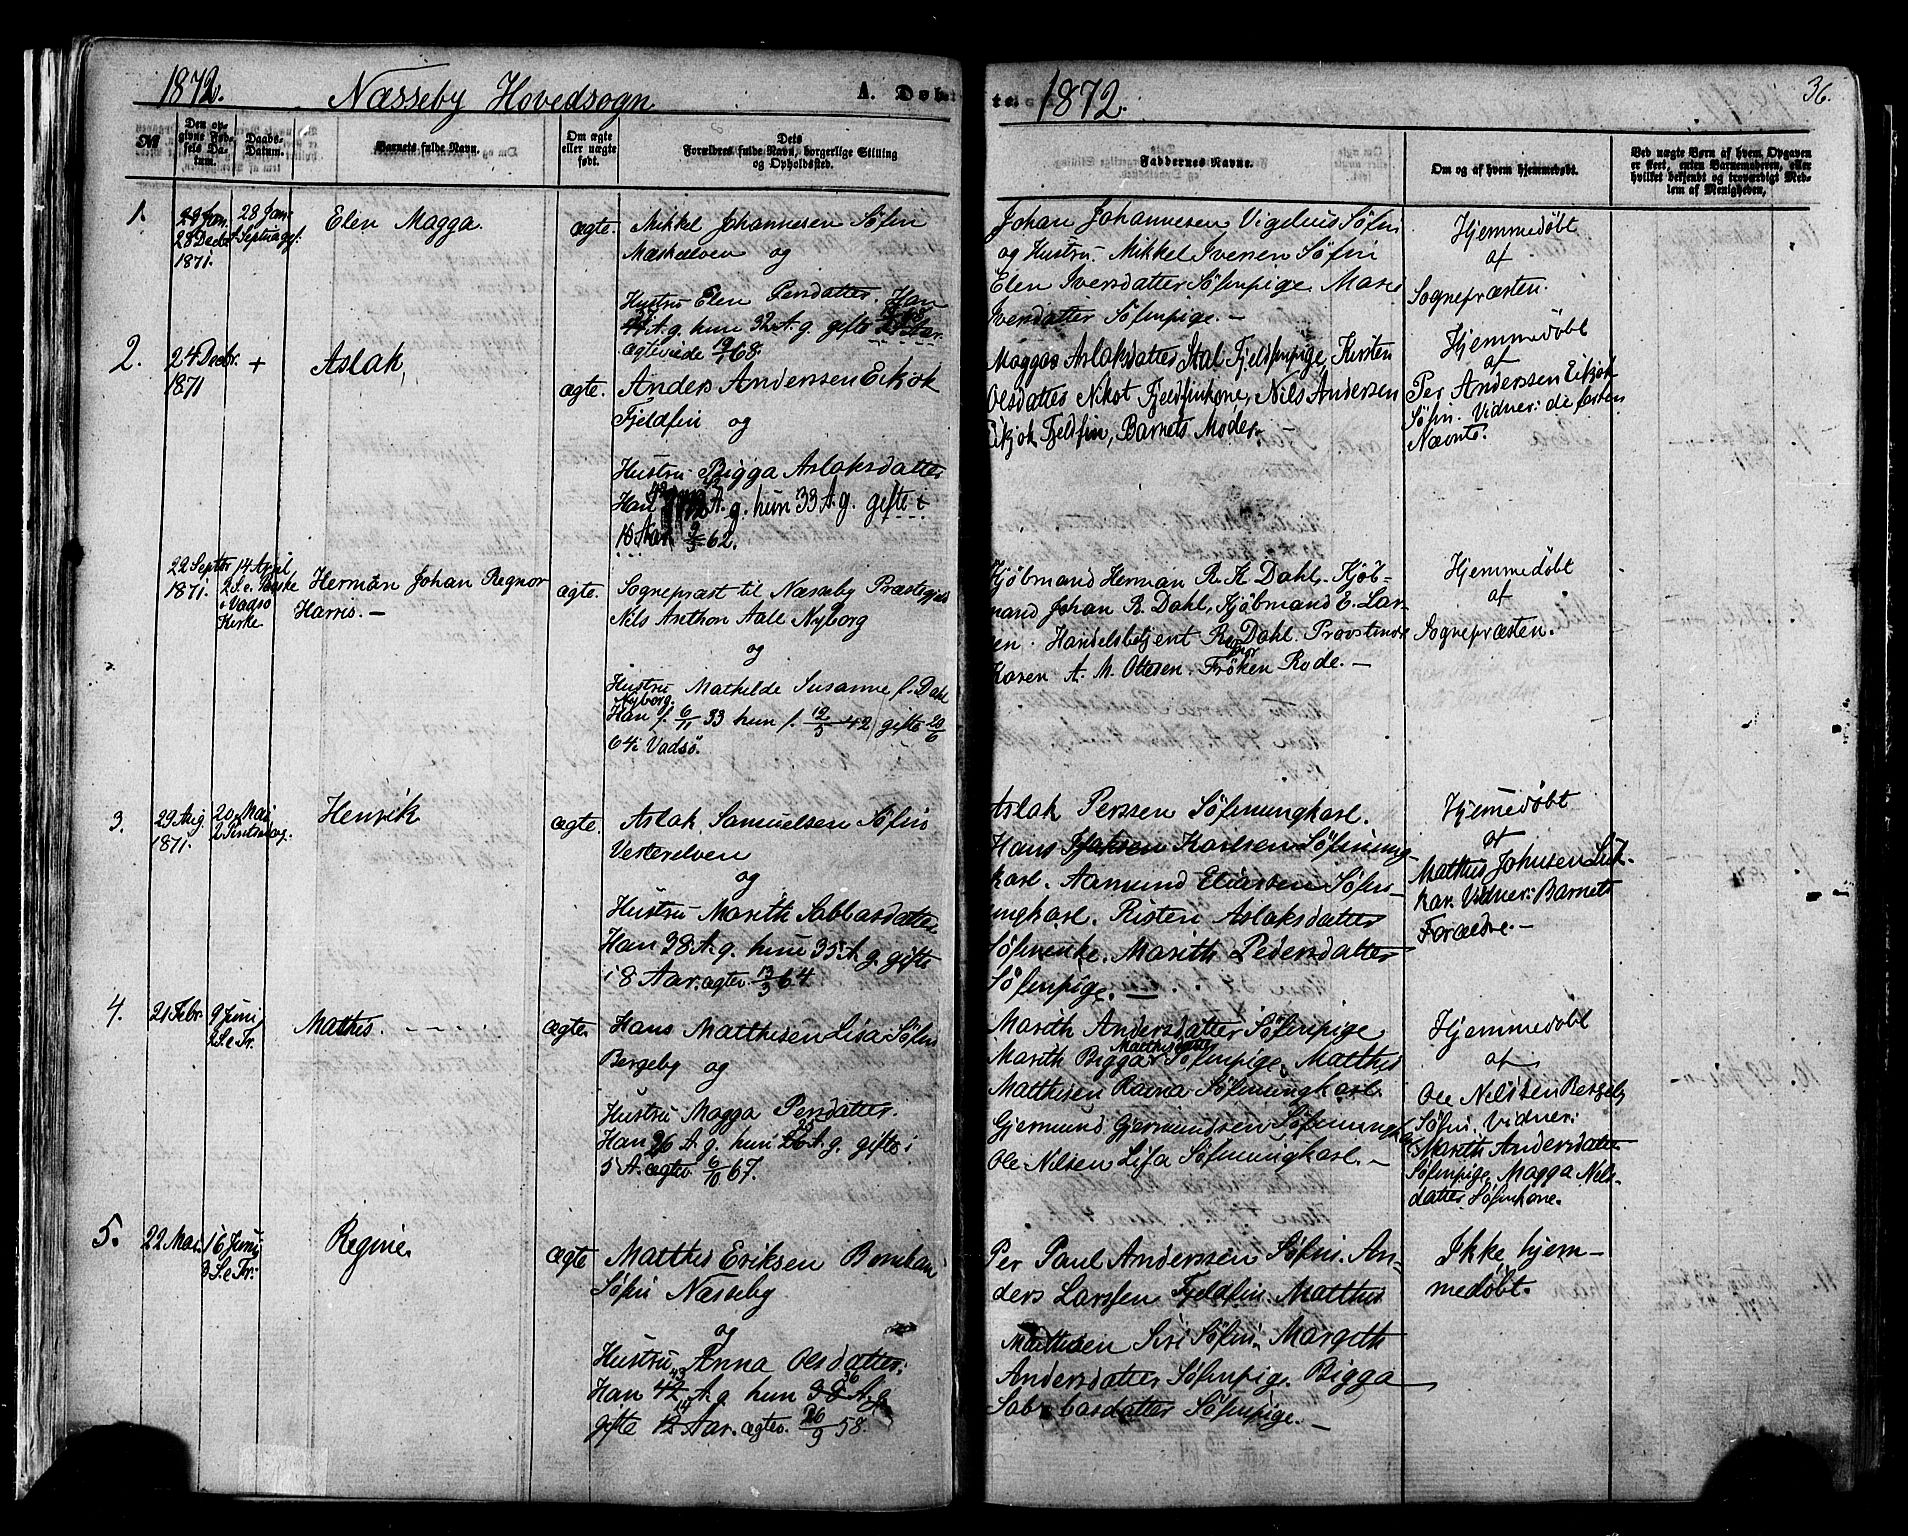 1872. Næsseby Hovedsogn A. Døb
№
Den opgivne Fødsels Datum.
Daabs-Datum.
Barnets fulde Navn.
Om ægte eller uægte født.
Dets Forældres fulde Navn, borgerlige Stilling og Opholdssted.
1.
28 Decbr 1871.
28 Jan. Septuag.
Elen Magga
ægte.
Mikkel Johannesen Söfin
Mæskelven og
Hustru Elen Persdatter. Han
A. g. hun 32 A. g. gifte
Aar.
ægteviede 68.
2.
24 Decbr. 1871
+
Aslak,
ægte.
Anders Anderssen Eikjok
Fjeldfin og
Hustru Bigga Aslaksdatter
Han A. g. hun 33 A. g. gifte i
10 Aar 62.
22 Septbr 1871.
14 April, 2 S. e. Paaske i Vadsö Kirke
Herman Johan Regnor
Harris. —
ægte.
Sognepræst til Næsseby Præstegjeld
Nils Anthon Aale Nyborg
og
Hustru Mathilde Susanne f. Dahl
Nyborg.
Han f. 6/11 33 hun f. 12/5 42, gifte 20/6
64 i Vadsö.
3.
29 Aug 1871.
20 Mai 2 Pintsedag.
Henrik
ægte.
Aslak Samuelsen Söfin
Vesterelven
og
Hustru Marith Sabbasdatter
Han 38 A. g. hun 35 A. g. gifte
i 8 Aar. ægtev. 13/3 64
4.
21 Febr.
9 Juni, 2 S. e. Tr.
Mathis.
ægte.
Hans Matthisen Lisa Söfin
Bergeby og
Hustru Magga Persdatter.
Han 26 A. g. hun A. g. gifte i
5 A. ægtev. 6/10 67.
5.
22 Mar.
16 Juni, 3 S. e. Tr.
Regine.
ægte
Matthis Eriksen
Söfin Næsseby
og
Hustru Anna Olsdatter.
Han 42 43 A. g hun 38 36 A. g.
gifte 12 14 Aar. ægtev. 26/9 58.
1872. 36.
Faddernes Navne.
Om og af hvem hjemmedøbt.
Ved uægte Børn af hvem Opgaven
er skeet, enten Barnemoderen, eller
hvilket bekjendt og troværdigt Med-
lem af Menigheden,
Johan Johannesen Vigelius Söfin
og Hustru. Mikkel Iversen Söfin
Elen Iversdatter Söfinpige. Mari
Iversdatter Söfinpige. —
Hjemmedöbt
af
Sognepræsten.
Maggas Aslaksdatter Stal Fjeldfinpige, Kirsten
Olsdatter Nikot Fjeldfinkone, Nils Andersen
Eikjok Fjeldfin, Barnets Moder. —
Hjemmedöbt
af
Per Anderssen Eikjok
Söfin. Vidner: de försten
Nævnte.
Kjöbmand Herman R. K Dahl. Kjöb-
mand Johan R. Dahl, Kjöbmand E. Lar-
sen. Handelsbetjent Regnor Dahl. Provstinde
Karen A. M. Olesen. Fröken Rode. —
Hjemmedöbt
af
Sognepræsten.
Aslak Perssen Söfinungkarl.
Hans Karlsen Söfinung-
karl. Aamund Eliassen Söfin-
ungkarl. Risten Aslaksdatter
Söfinenke. Marith Pedersdatter
Söfinpige. —
Hjemmedöbt
af
Matthis Johnsen Luk-
kar. Vidner: Barnets
Forældre. —
Marith Andersdatter Söfinpige
Marith Biggar Matthisdatter Söfinpige. Matthis
Matthisen Rauna Söfinungkarl.
Gjermund Gjermundsen Söfinungkarl
Ole Nilsen Lisa Söfinungkarl. —
Hjemmedöbt
af
Ole Nilssen Bergeby
Söfin. Vidner:
Marith Andersdatter
Söfinpige, Magga Nils-
datter Söfinkone.
Per Paul Anderssen Söfin. An-
ders Larssen Fjeldfin. Matthis
Mathisen Siri Söfin. Margith
Andersdatter Söfinpige. Bigga
Sabbasdatter Söfinpige. —
Ikke hjem-
medöbt.